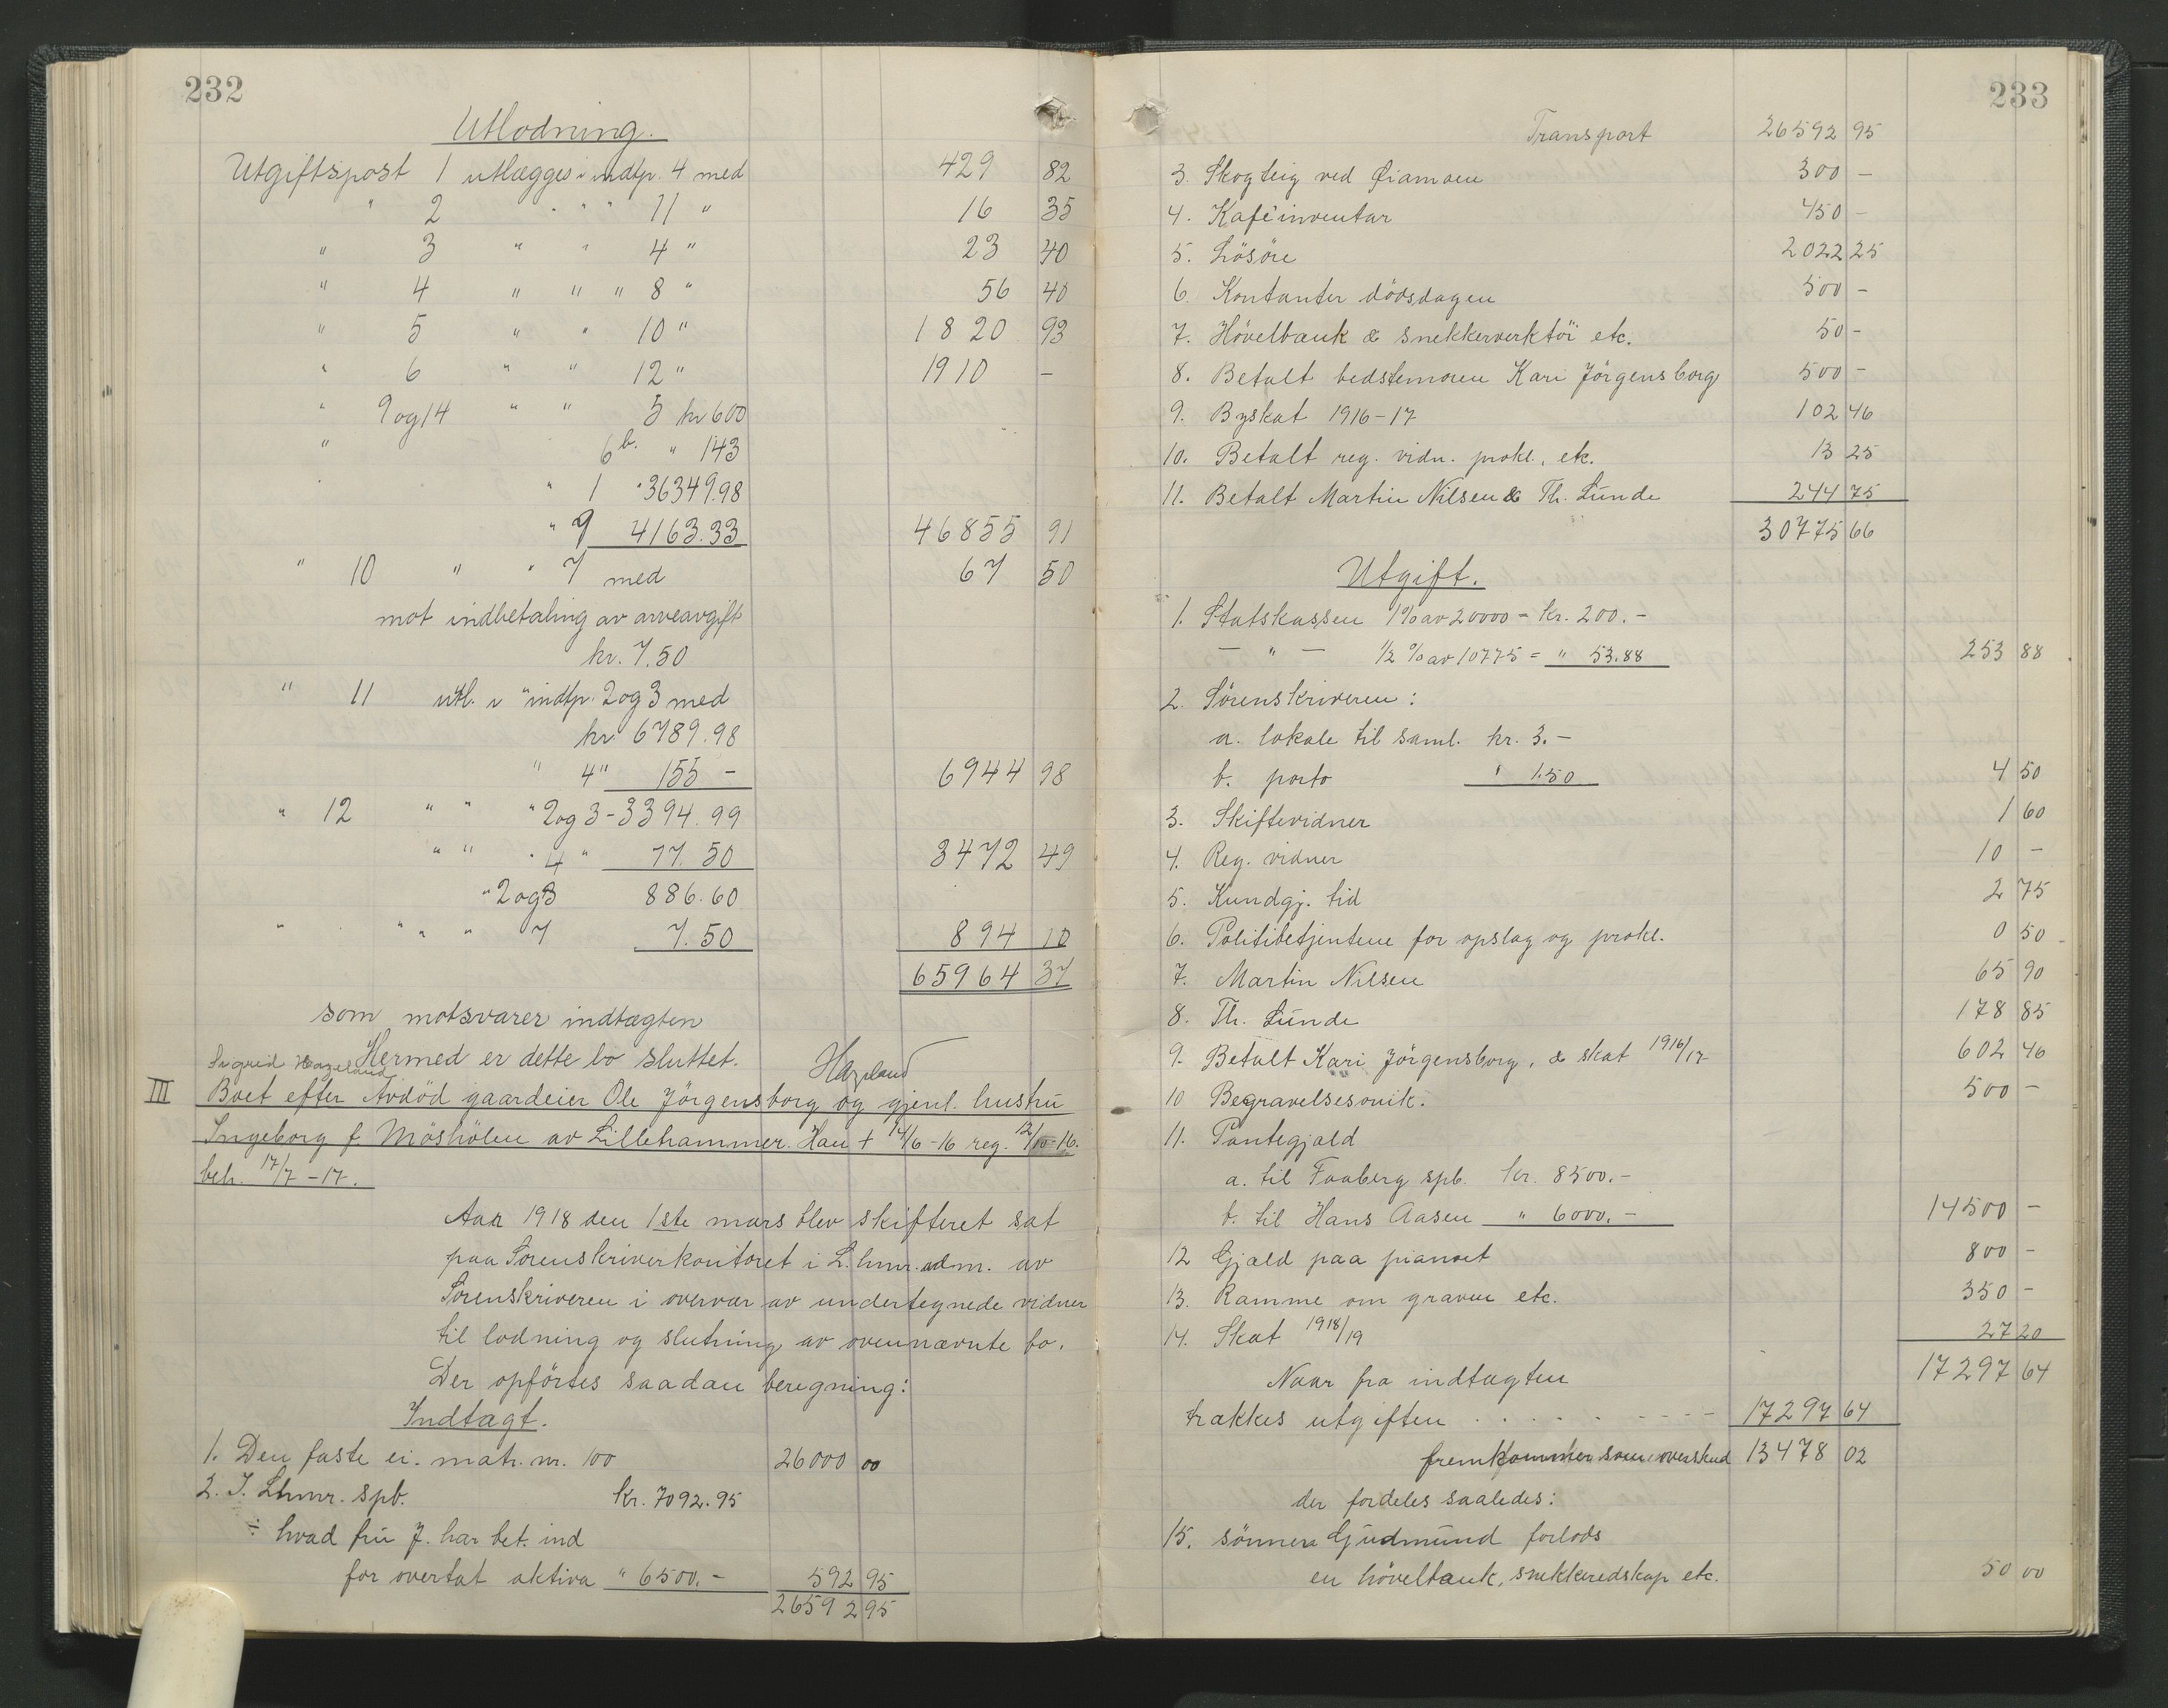 232
Utlodning.
Utgiftspost 1 utlægges i indtp. 4 med 429 82
" 2 " " " 11 " 16 35
" 3 " " 4 " 23 40
" 4 " " " 8 " 56 40
" 5 " " 10 " 1820 93
" 6 " " 12 " 1910 -
" 9 og 14 " " 5 kr 600
" 6b. " 143
" 1 " 36349.98
" 9 4163.33 46855 91
" 10 " " 7 med 67 50
mot indbetaling av arveavgift
kr. 7.50
" 11 utl. i indtp. 2 og 3 med
kr. 6789.98
" 4 " 155 - 6944 98
" 12 " " " 2 og 3 - 3394.99
" " " 4 " 77.50 3472 49
" 2 og 3 886.60
" " " " 7 7.50 894 10
65964 37
som motsvarer indtægten
Hermed er dette bo sluttet.
Sigrid Hazeland Hazeland
III Boet efter Avdöd gaardeier Ole Jörgensborg og gjenl. hustru
Ingeborg f. Möshölen av Lillehammer. Han + 14/6-16 reg. 12/10-16.
beh. 17/7-17.
Aar 1918 den 1ste mars blev skifteret sat
paa Sorenskriverkontoret i L.hmr. adm. av
Sorenskriveren i overvær av undertegnede vidner
til lodning og slutning av ovennævnte bo.
Der opförtes saadan beregning:
Indtægt.
1. Den faste ei. matr. nr. 100 26000 00
2. I. Lhmr. spb. kr. 7092.95
÷ hvad fru J. har bet. ind
for overtat aktiva " 6500.- 592 95
26592 95
233
Transport 26592 95
3. Skogteig ved Öiamoen 300 -
4. Kaféinventar 450 -
5. Lösöre 2022 25
6. Kontanter dödsdagen 500 -
7. Hövelbænk & snekkerverktöi etc. 50 -
8. Betalt bedstemoren Kari Jörgensborg 500 -
9. Byskat 1916-17 102 46
10. Betalt reg. vidn. prokl., etc. 13 25
11. Betalt Martin Nilsen & Th. Lunde 244 75
30775 66
Utgift.
1. Statskassen 1% av 20000 = kr. 200.-
- " - 1/2 % av 10775 = " 53.88 253 88
2. Sorenskriveren:
a. lokale til saml. kr. 3.-
b. porto " 1.50 4 50
3. Skiftevidner 1 60
4. Reg. vidner 10 -
5. Kundgj. tid 2 75
6. Politibetjentene for opslag og prokl. 0 50
7. Martin Nilsen 65 90
8. Th. Lunde 178 85
9. Betalt Kari Jörgensborg, & skat 1916/17 602 46
10 Begravelsesomk. 500 -
11. Pantegjæld
a. til Faaberg spb. kr. 8500.-
b. til Hans Aasen " 6000.- 14500 -
12 Gjæld paa pianoet 800 -
13. Ramme om graven etc. 350 -
14. Skat 1918/19 27 20
17297 64
Naar fra indtægten
trækkes utgiften . . . . . . . . 17297 64
fremkommer som overskud 13478 02
der fordeles saaledes:
15. sönnen Gudmund forlods
en hövelbænk, snekkeredskap etc. 50 00